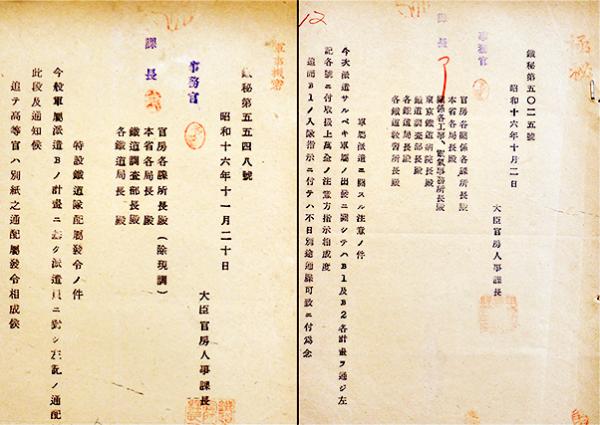 極秘
鐵秘第五〇二五號
昭和十六年十月二日
大臣官房人事課長
事務官
課長
12
官房各關係各課所長殿
本省各局長殿
關係各工事、電氣事務所長殿
東京鐵道病院長殿
鐵道調査部長殿
各鐵道局長殿
各鐵道教習所長殿
軍屬派遣ニ關スル注意ノ件
今次派遣サルベキ軍屬ノ出發ニ關シテハB1及B2各計畫ヲ通ジ左
記各號ニ付取扱上萬全ノ注意方指示相成度
追而B1ノ人隊指示ニ付テハ不日別途通牒可致ニ付爲念
軍事機密
鐵秘第五五四八號
昭和十六年十一月二十日
大臣官房人事課長
事務官
課長
官房各課所長殿（除現調）
本省各局長殿
鐵道調査部長殿
各鐵道局長殿
特設鐵道隊配屬發令ノ件
今般軍屬派遣Bノ計畫ニ基ク派遣員ニ對シ左記ノ通配
此段及通知候
追テ高等官ハ別紙之通配屬發令相成候